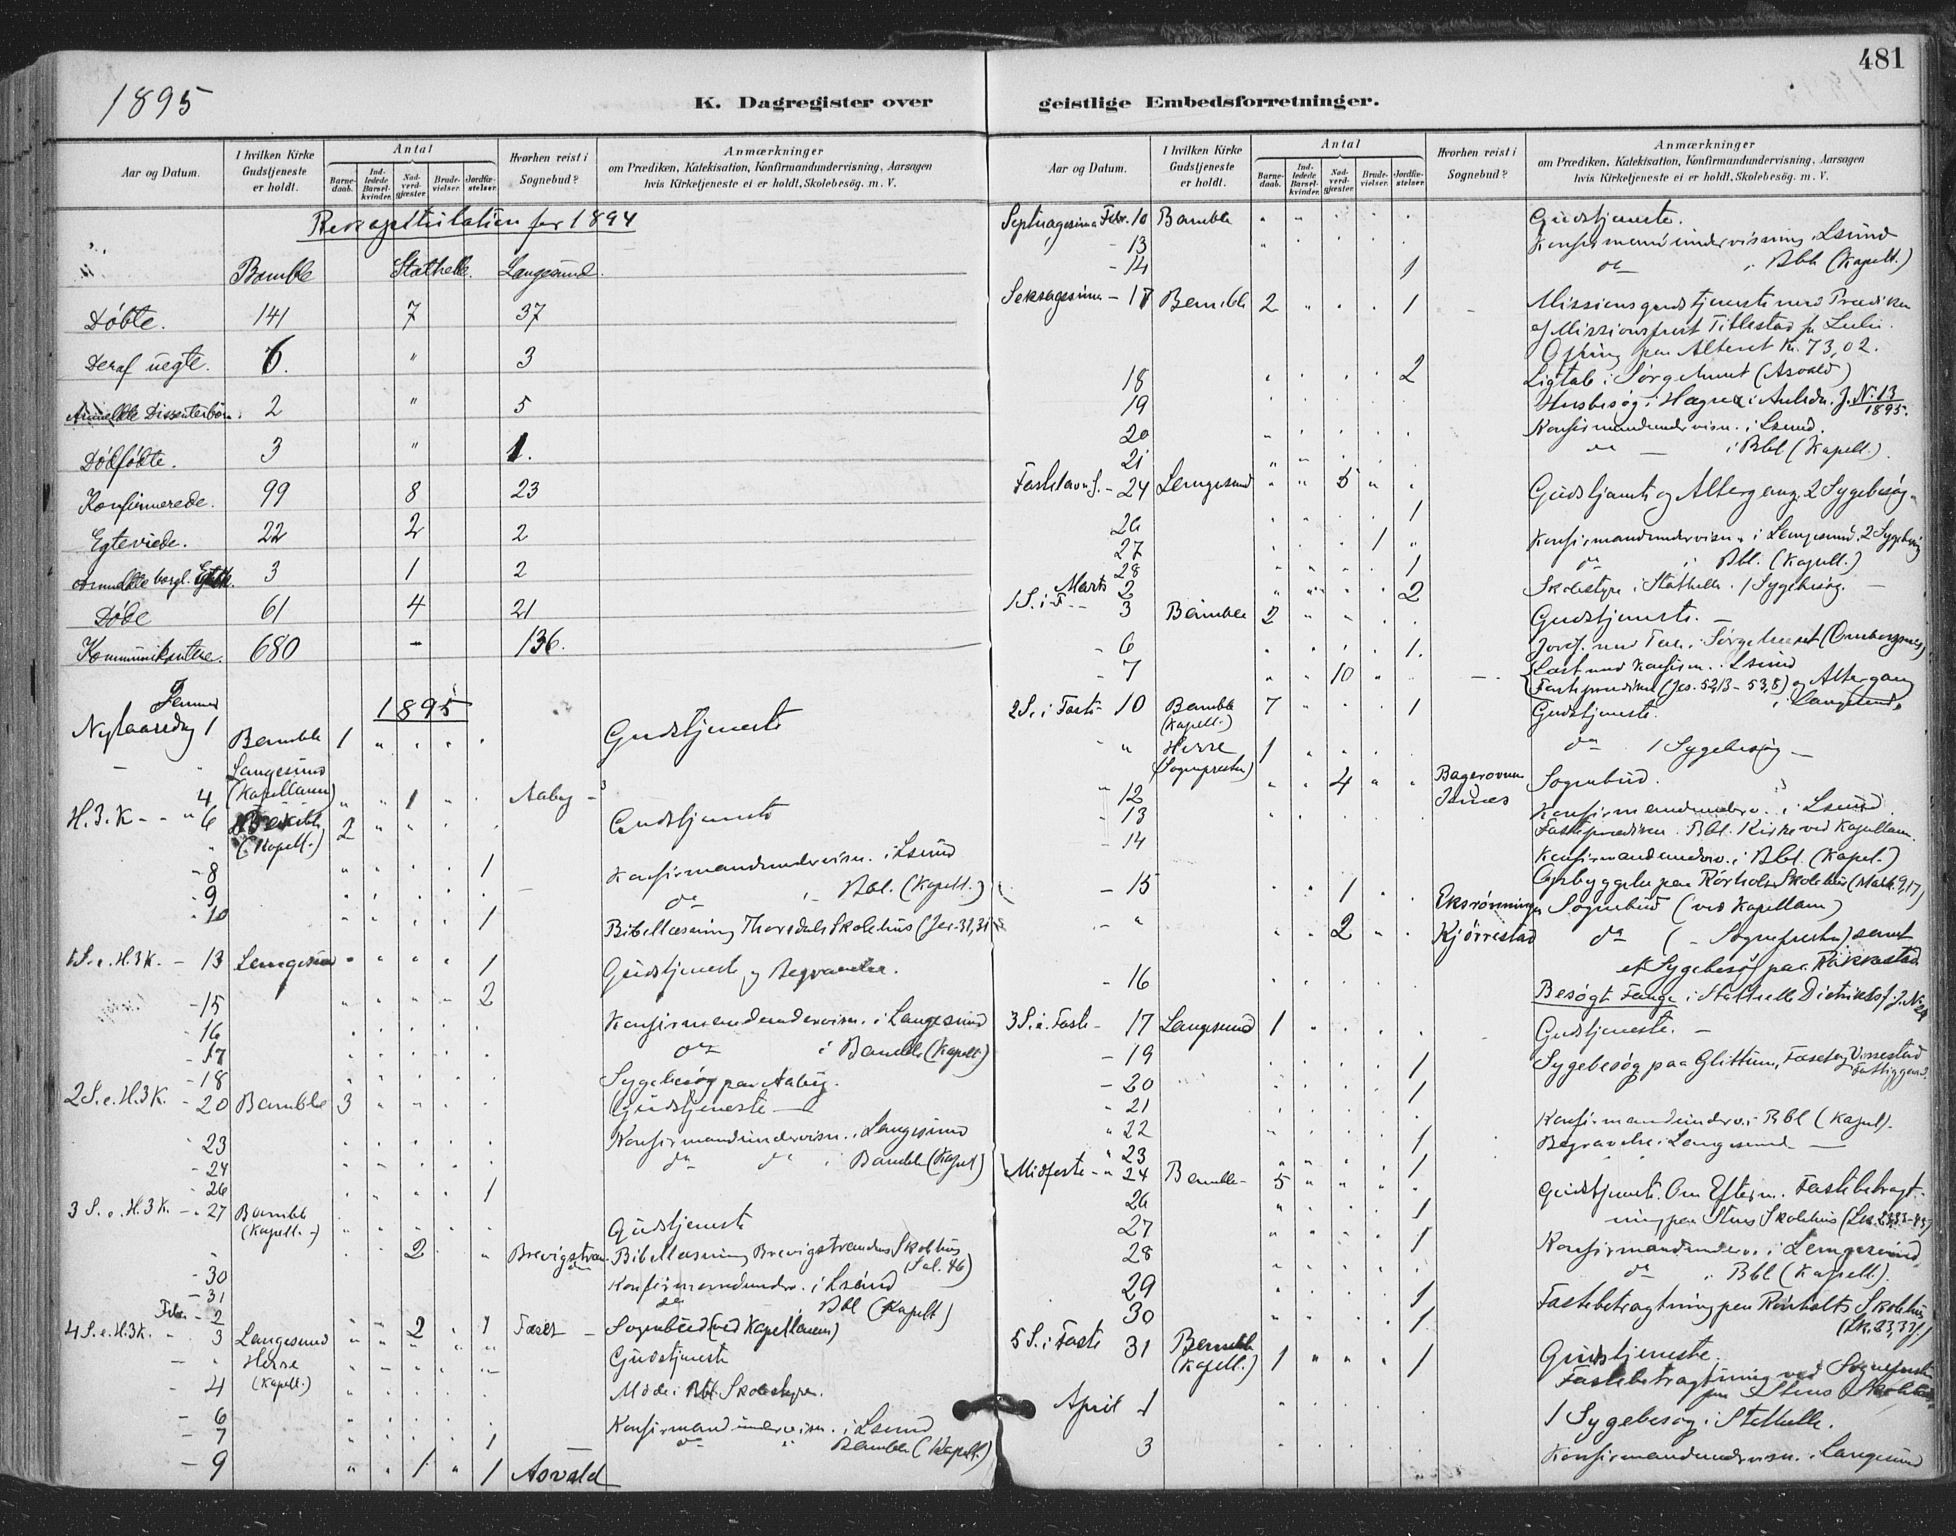 481
1895
K. Dagregister over geistlige Embedsforretninger.
Aar og Datum.
I hvilken Kirke Gudstjeneste er holdt.
Antal
Barne-daab.
Ind-ledede Barsel-kvinder.
Nad-verd-gjæster.
Brude-vielser.
Jordfæ-stelser.
Hvorhen reist i Sognebud?
Anmærkninger
om Prædiken, Katekisation, Konfirmandundervisning, Aarsagen
hvis Kirketjeneste ei er holdt, Skolebesøg. m. V.
Rekapitulation for 1894
Bamble Stathelle Langesund.
Døbte. 141 7 37
Deraf uegte. 6. " 3
Anmeldte Dissenterbørn. 2 " 5
Dødfødte. 3 " 1.
Konfirmerede. 99 8 23
Egteviede. 22 2 2
Anmeldte borgl. Egtsk. 3 1 2
Døde 61 4 21
Kommunikantere. 680 - 136.
1895
Januar
Nytaarsdag 1 Bamble 1 " " " " Gudstjeneste
- " Langesund
4 (Kapellanen) " " 1 " " Aaby -
H.3.K - - " 6 (Kapell.) 2 " " Gudstjeneste
- 8 1 Konfirmandundervisn. i Lsund
- 9 do - Bbl. (Kapell.)
- 10 1 Bibellæsning Thorsdals Skolehus (Jer. 31,31
1 S. e. H.3K. - 13 Langesund 1 Gudstjeneste og
2
- 15 Konfirmandundervisn. i Langesund
- 16 do i Bamble (Kapell.)
- 17
- 18 Sygebesøg paa Aaby.
2 S. e. H.3K. - 20 Bamble 3 Gudstjeneste -
23 Konfirmandundervisn. i Langesund
- 24 do do i Bamble (Kapel)
- 26 1
3 S. e. H.3K. - 27 Bamble Gudstjeneste
(Kapell. -) 2 " Brevigstran- Bibellæsning Brevigstrandens Skolehus
(Sal. 46)
- 30 Konfirmandunderv. i Lsund
- 31 do Bbl (Kapell)
Febr. - 2 2 1 Fosset - Sognebud (ved Kapellanen)
4 S. e. H.3K. - 3 Langesund Gudstjeneste
- " Herre
- 4 (Kapell.) Møde i Bbl. Skolestyre.
- 6 Konfirmandundervisn. i Lsund
- 7 1 do " Bamble (Kapell.)
- 9 " " 1 " 1 Asvald
Aar og Datum.
I hvilken Kirke Gudstjeneste er holdt.
Antal
Barne-daab.
Ind-ledede Barsel-kvinder.
Nad-verd-gjæster.
Brude-vielser.
Jordfæ-stelser.
Hvorhen reist i Sognebud?
Anmærkninger
om Prædiken, Katekisation, Konfirmandundervisning, Aarsagen
hvis Kirketjeneste ei er holdt, Skolebesøg. m. V.
Septuagesima Febr. 10 Bamble Gudstjeneste.
- 13 Konfirmandundervisning i Lsund
- 14 1 do i Bbl (Kapell.)
Seksagesima - 17 Bamble 2 1 Missionsgudstjeneste med Prædiken
af Missionsprest Tittestad fr Zulu.
Ofring paa Alteret Kr. 73,02.
18 2 Ligtale i Sørgehuset (Asvald)
19 Husbesøg i Hegna i Anledn. J. N. 13/1895.
20 Konfirmandundervisn. i Lsund.
21 do - i Bbl (Kapell.)
Fastelavn S. - 24 Langesund " " 5 " Gudstjeneste og Altergang. 2 Sygebesøg
26 1
27 1 " Konfirmandundervisn. i Langesund, 2 Sygebesøg
28 1 do i Bbl. (Kapell.)
Marts 2 2 Skolestyre i Stathelle. 1 Sygebesøg. -
1 S. i F. - 3 Bamble 2 Gudstjeneste. -
- 6 1. Jordf. med Tale i Sørgehuset (Omborsnes)
- 7 10 Læst med Konfirm. i Lsund
Fasteprædiken (Jes. 52,13 - 53,8) og Altergang
i Langesund.
2 S. i Faste - 10 Bamble 7 1 Gudstjeneste.
(Kapell.)
- " Herre 1 do 1 Sygebesøg -
(Sognepresten)
" 12 4 " " Sognebud.
- 13 Konfirmandunderv. i Lsund.
- 14 Fasteprædiken Bbl. Kirke ved Kapellan.
Konfirmandunderv. i Bbl. (Kapel.)
- 15 1 Opbyggelse paa Rørholt Skolehus (Mark. 9,17)
Eksrønningen Sognebud (ved Kapellan)
- " 2 Kjørrestad do ( - Sognepresten) samt
et Sygebesøg paa Rakkestad
- 16 Besøgt Fange i Stathelle Distriktsf. J. No 24
3 S. i Faste - 17 Langesund 1 Gudstjeneste. -
- 19 1 Sygebesøg paa Glittum, Fosset og Vissestad
Fattiggaard.
- 20 1
" 21 Konfirmandunderv. i Bbl (Kapel.)
" 22 1 Begravelse i Langesund -
" 23 1
Midfaste - " 24 Bamble - 5 Gudstjeneste. Om Efterm. Fastebetragt-
26 1 ning paa Stens Skolehus (Luk. 23,33-43)
27 1 Konfirmandunderv. i Langesund
28 do i Bbl (Kapell.)
29 1 Fastebetragtning paa Rørholts Skolehus
30 1 (Lk. 23,33ff)
5 S. i Faste 31 Bamble 1 " " " 1 Gudstjeneste.
(Kapell.) Fastebetragtning ved Sognepresten
paa Stens Skolehus
April 1 1 Sygebesøg i Stathelle.
3 Konfirmandundervisn. i Langesund